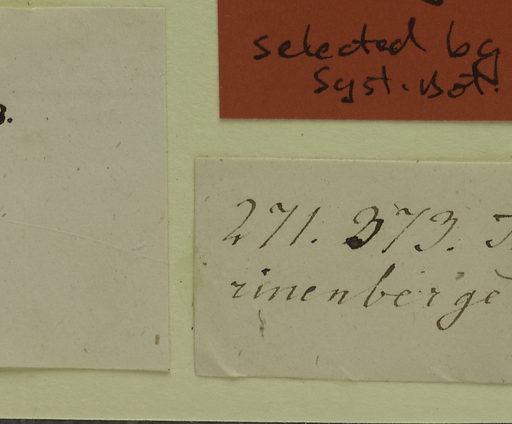 3.
selected by
Syst. Bot.
271. 373.
rinenberge